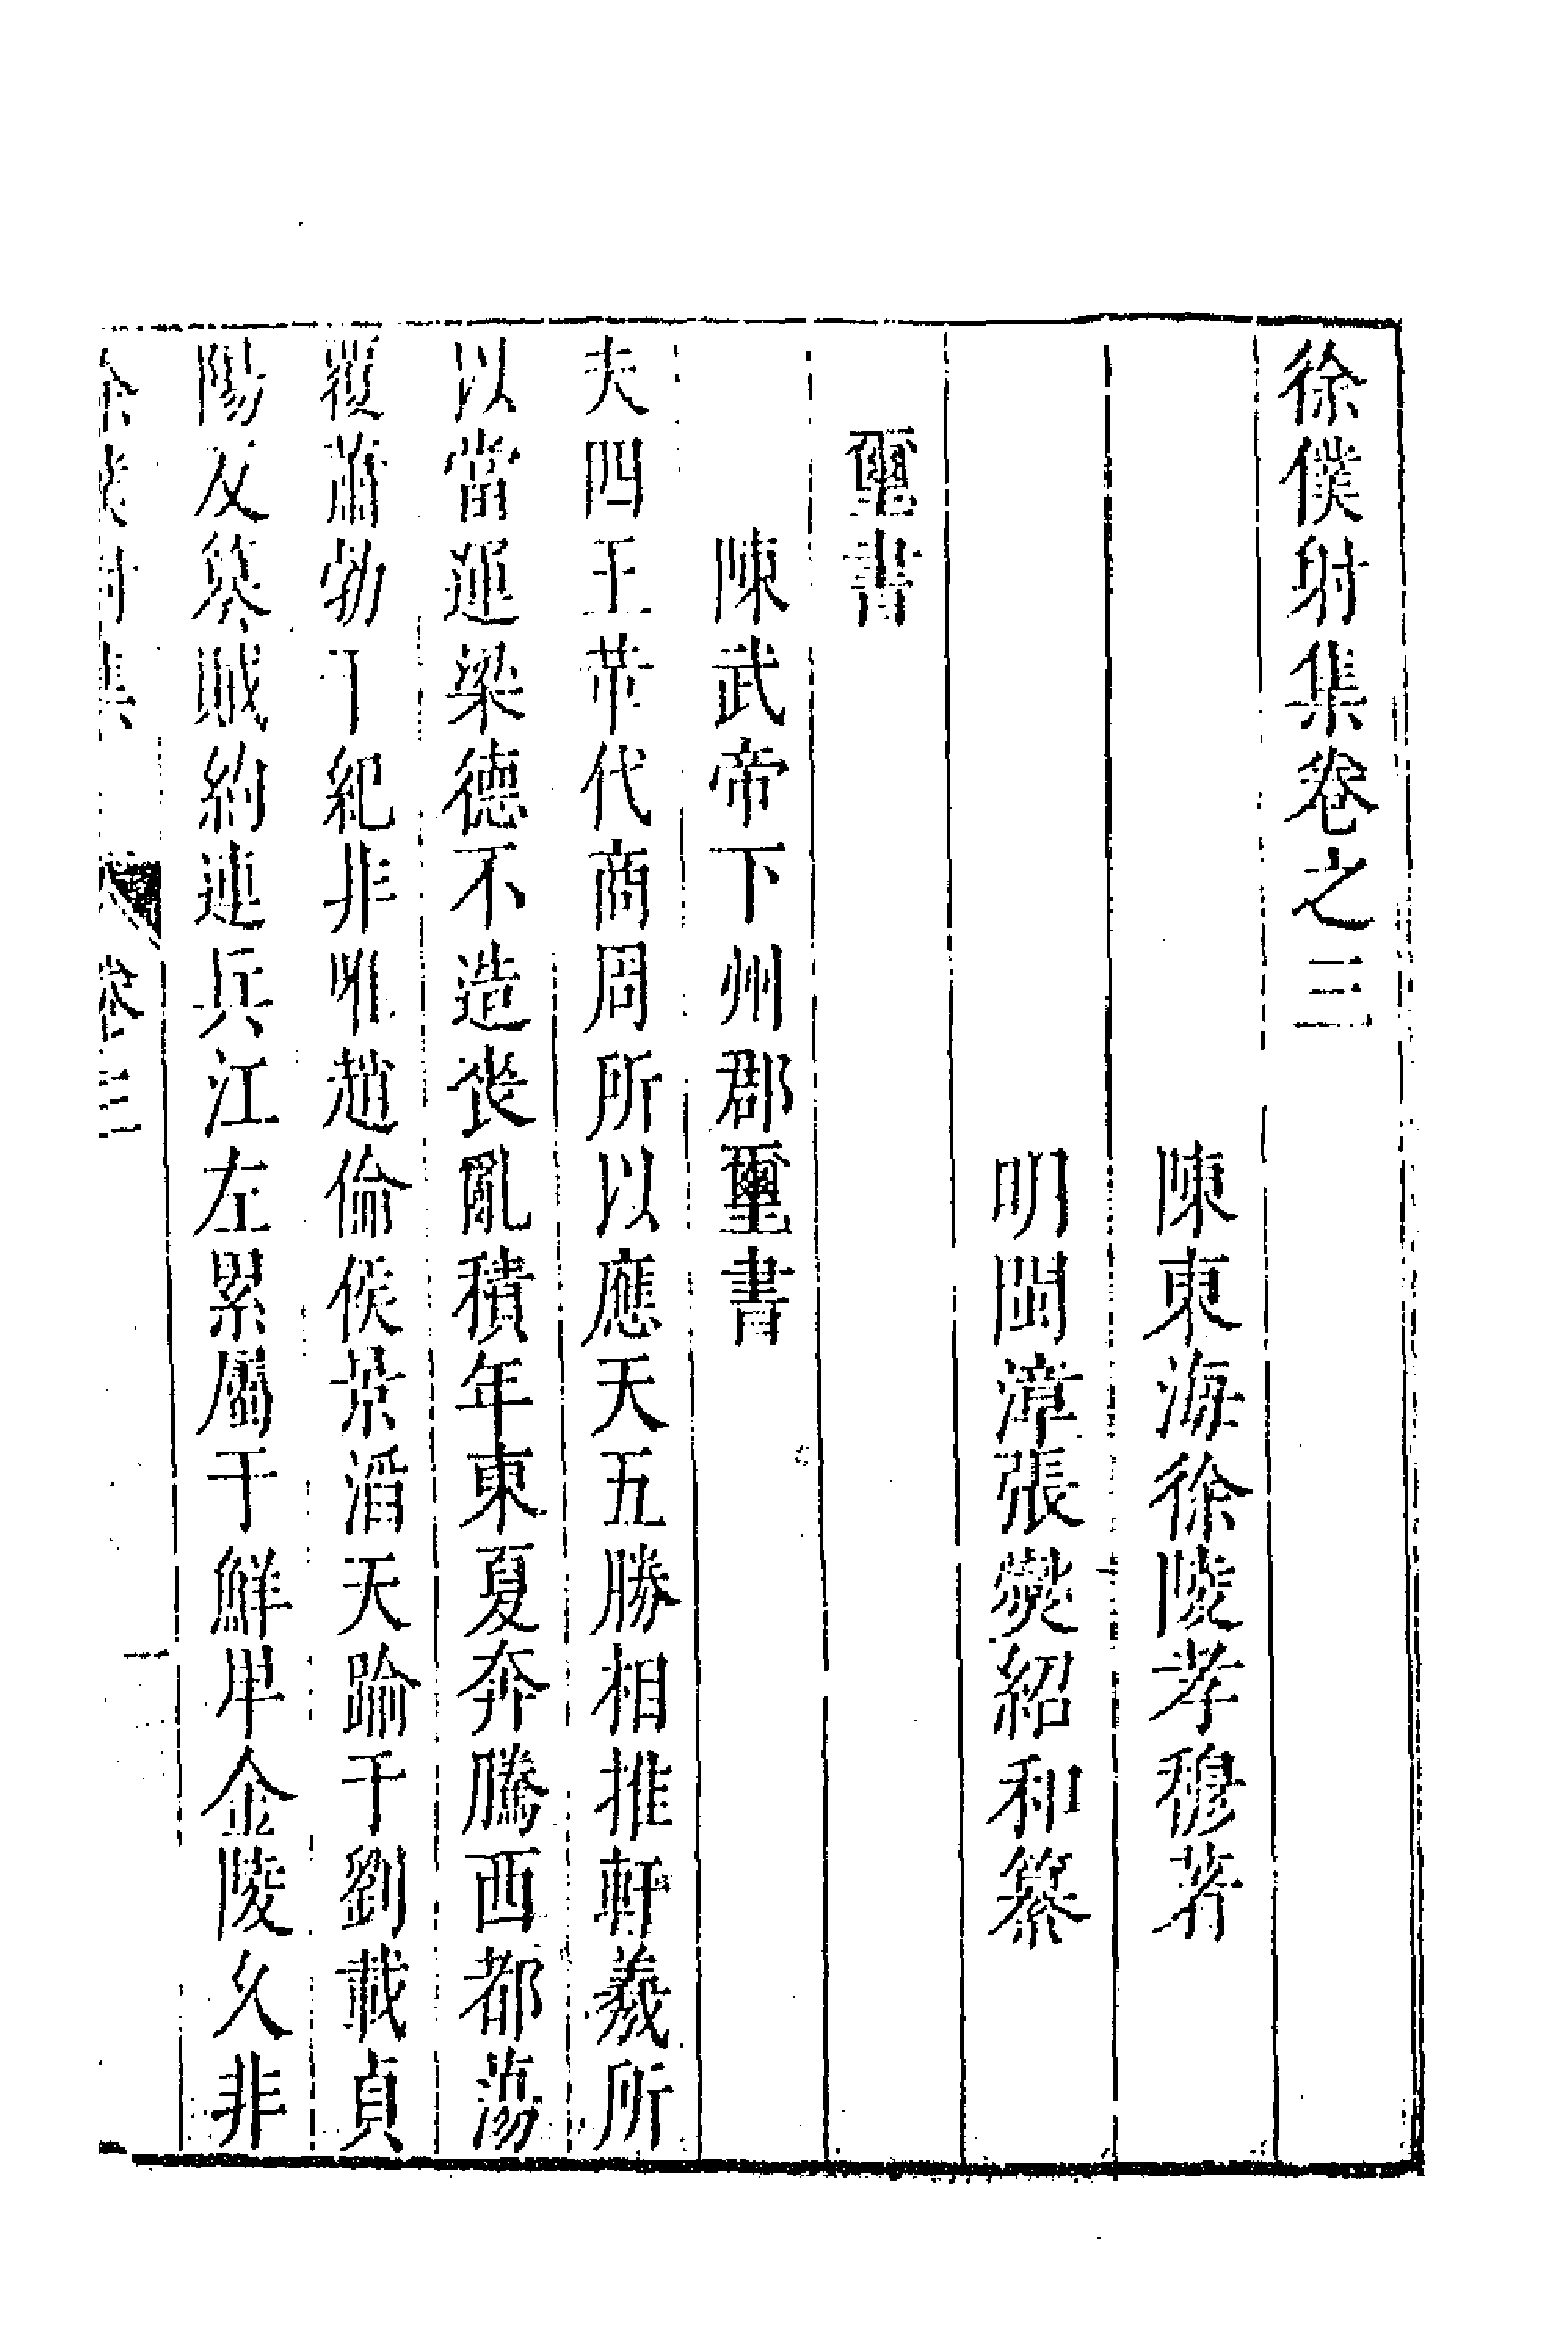 徐僕射集卷之三
陳東海徐陵孝穆著
明閩漳張燮紹和纂
璽書
陳武帝下州郡璽書
夫四王革代商周所以應天五勝相推軒羲所
以當運梁德不造喪亂積年東夏奔騰西都蕩
覆蕭勃干紀非唯趙倫侯景滔天踰于劉載貞
陽反篡賊約連兵江左累屬于鮮卑金陵久非
徐僕射集 卷三 一